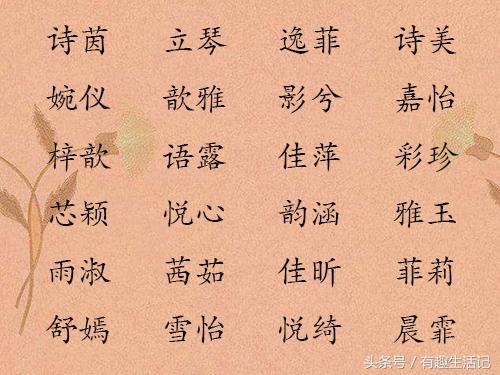 诗茵 立琴 逸菲 诗美
婉仪 歆雅 影兮 嘉怡
梓歆 语露 佳萍 彩珍
芯颖 悦心 韵涵 雅玉
雨淑 茜茹 佳昕 菲莉
舒嫣 雪怡 悦绮 晨霏
头条号 / 有趣生活记